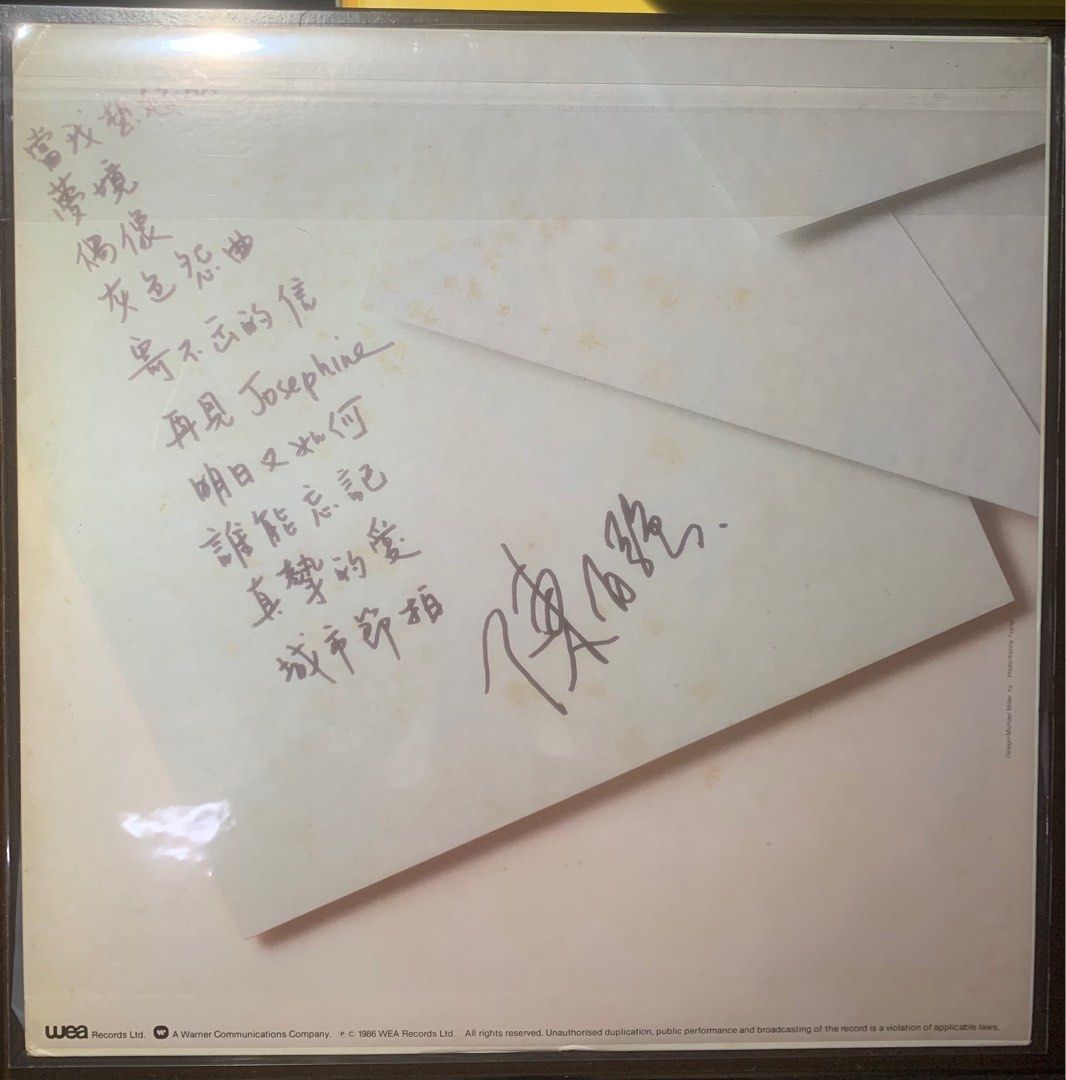 當我想起你
夢境
偶像
灰色怨曲
寄不出的信
再見 Josephine
明日又如何
誰能忘記
真摯的愛
城市節拍
陳百強
Design/Michael Miller Yu Photo/Kenny Tsang
wea Records Ltd. A Warner Communications Company. P C 1986 WEA Records Ltd. All rights reserved. Unauthorised duplication, public performance and broadcasting of the record is a violation of applicable laws.